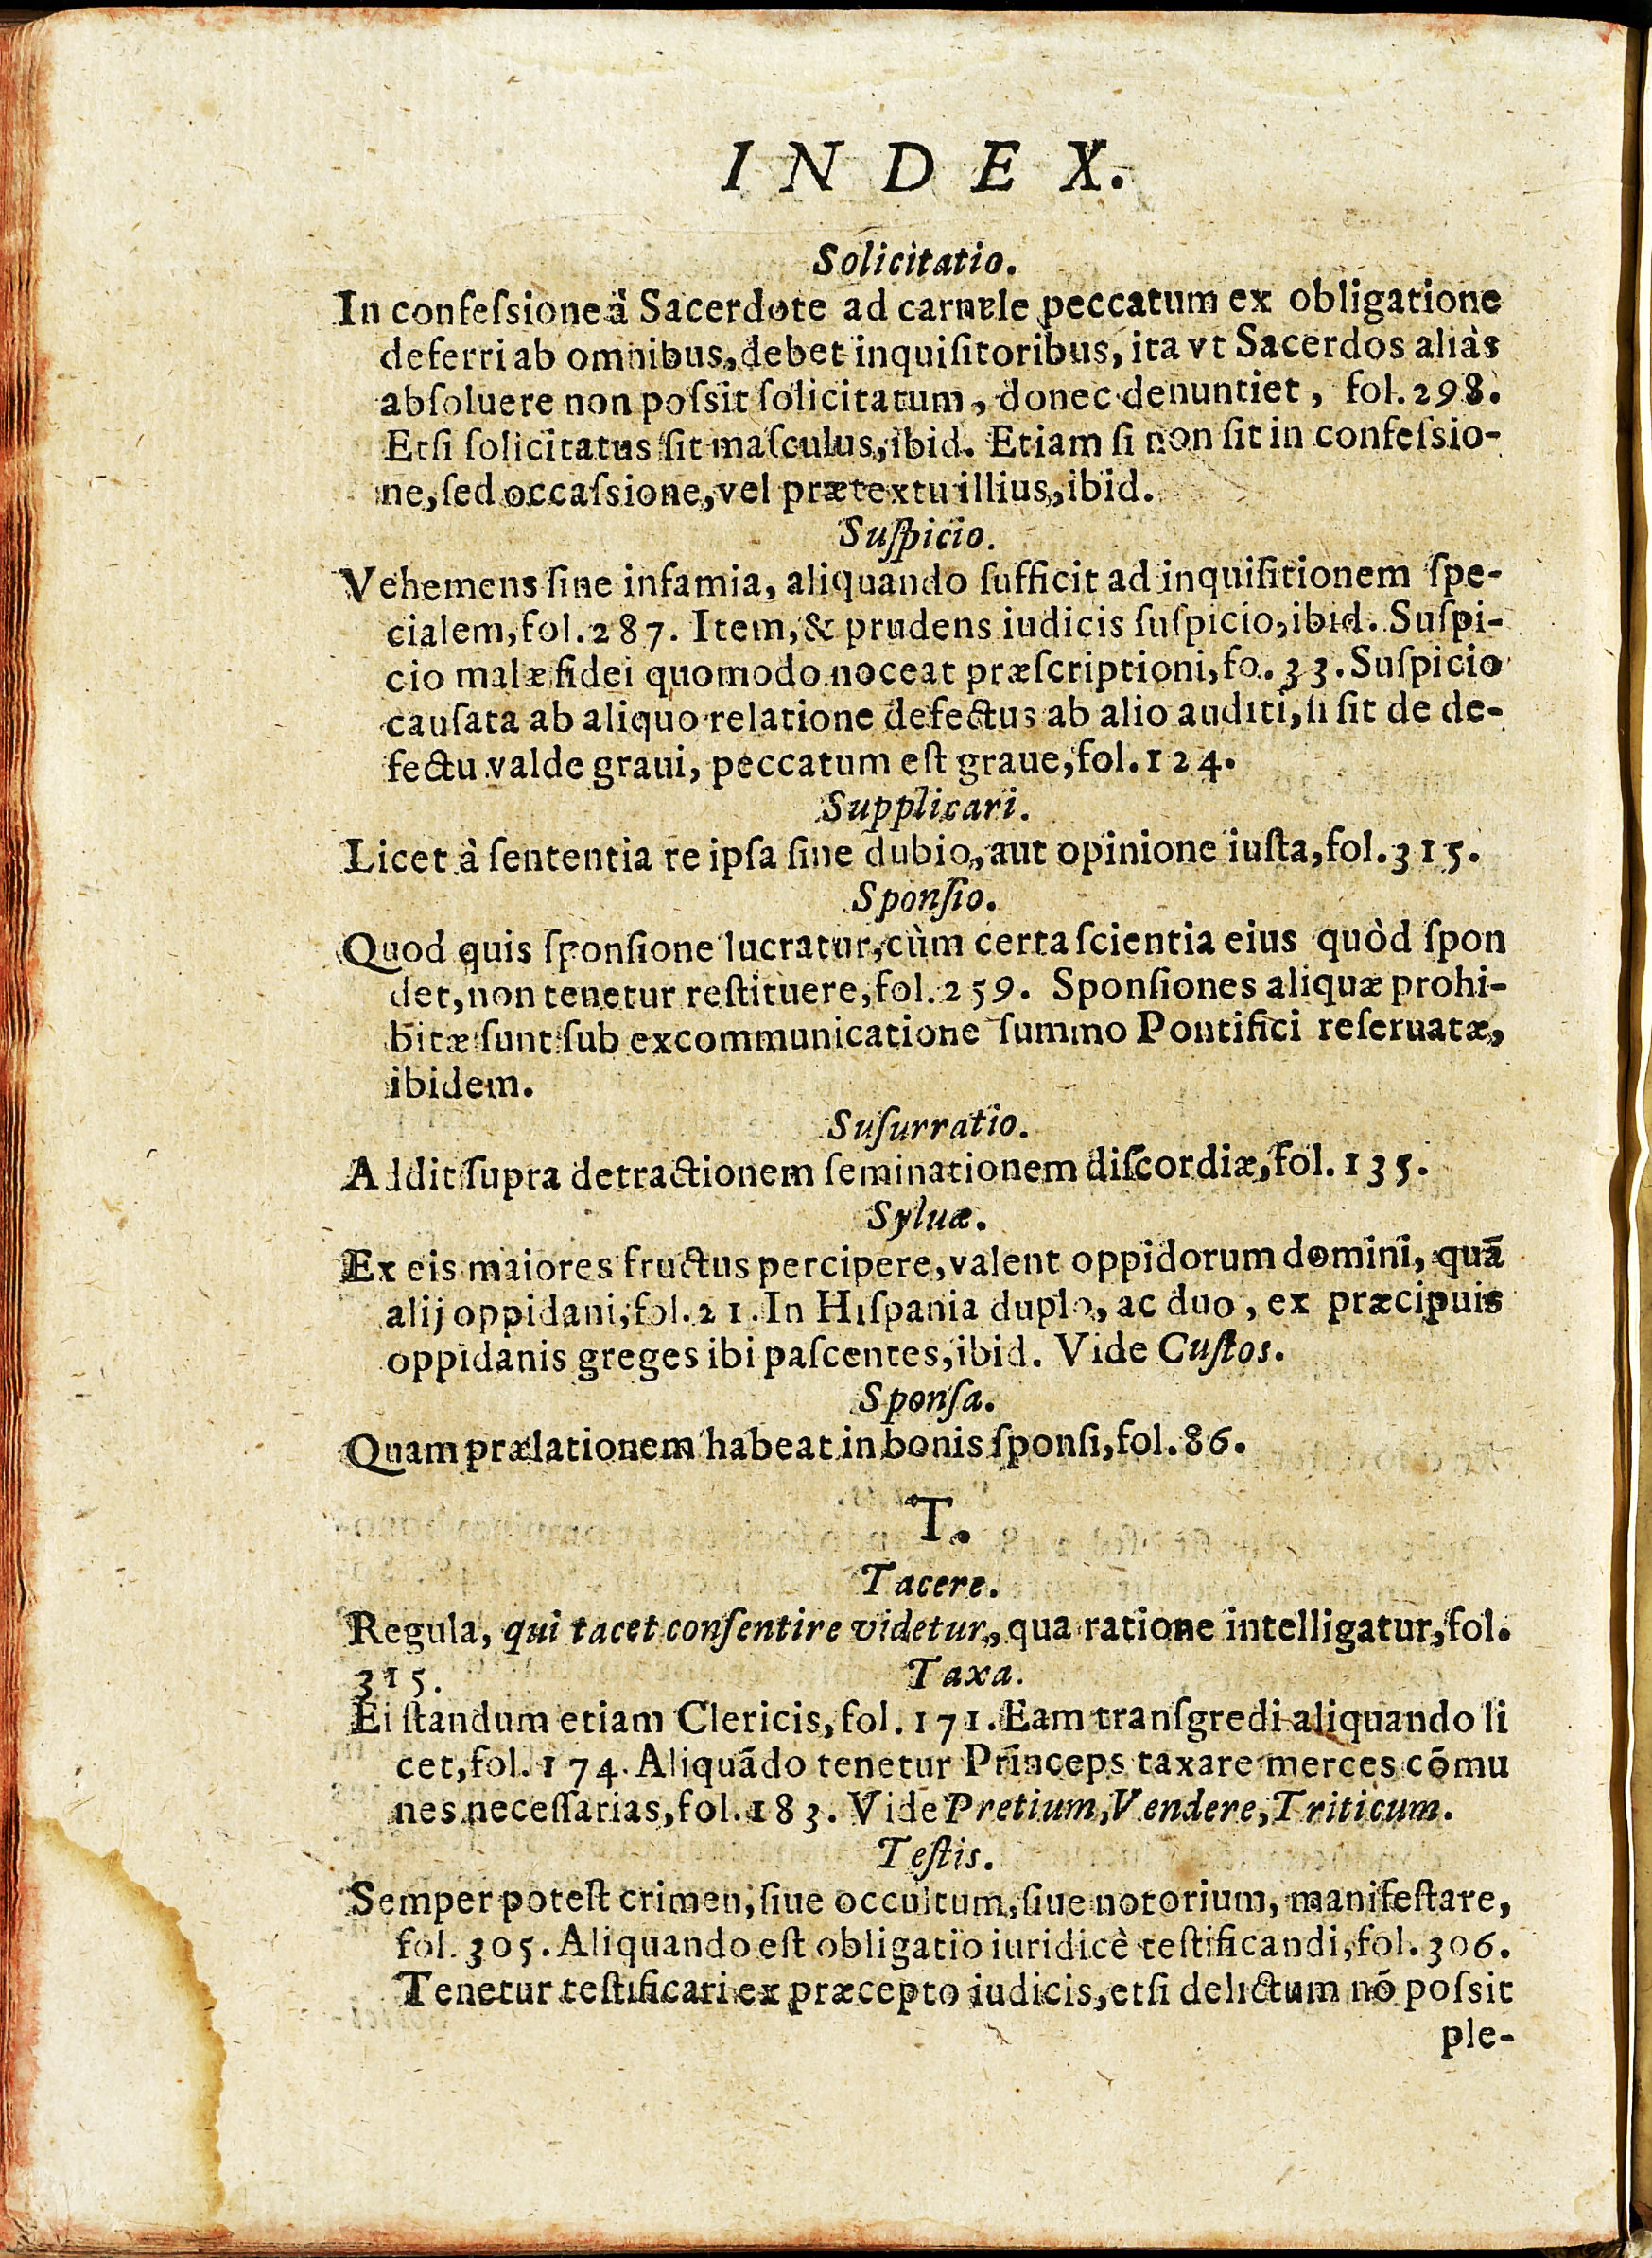 INDEX.
Solicitatio.
In confeſsione à Sacerdote ad carnale peccatum ex obligatione
deferri ab omnibus, debet inquiſitoribus, ita vt Sacerdos aliàs
abſoluere non poſsit ſolicitatum, donec denuntiet, fol. 298.
Etſi ſolicitatus ſit maſculus, ibid. Etiam ſi non ſit in confeſsio-
ne, ſed occaſsione, vel prætextu illius, ibid.
Suſpicio.
Vehemens ſine infamia, aliquando ſufficit ad inquiſitionem ſpe-
cialem, fol. 287. Item, & prudens iudicis ſuſpicio, ibid. Suſpi-
cio malæ fidei quomodo noceat præſcriptioni, fo. 33. Suſpicio
cauſata ab aliquo relatione defectus ab alio auditi, ſi ſit de de-
fectu valde graui, peccatum eſt graue, fol. 124.
Supplicari.
Licet à ſententia re ipſa ſine dubio, aut opinione iuſta, fol. 315.
Sponſio.
Quod quis ſponſione lucratur, cùm certa ſcientia eius quòd ſpon
det, non tenetur reſtituere, fol. 259. Sponſiones aliquæ prohi-
bitæ ſunt ſub excommunicatione ſummo Pontifici reſeruatæ,
ibidem.
Suſurratio.
Addit ſupra detractionem ſeminationem diſcordiæ, fol. 135.
Syluæ.
Ex eis maiores fructus percipere, valent oppidorum domini, quã
alij oppidani, fol. 21. In Hiſpania duplo, ac duo, ex præcipuis
oppidanis greges ibi paſcentes, ibid. Vide Cuſtos.
Sponſa.
Quam prælationem habeat in bonis ſponſi, fol. 86.
T.
Tacere.
Regula, qui tacet conſentire videtur, qua ratione intelligatur, fol.
315. Taxa.
Ei ſtandum etiam Clericis, fol. 171. Eam tranſgredi aliquando li
cet, fol. 174. Aliquãdo tenetur Princeps taxare merces cõmu
nes neceſſarias, fol. 183. Vide Pretium, Vendere, Triticum.
Teſtis.
Semper poteſt crimen, ſiue occultum, ſiue notorium, manifeſtare,
fol. 305. Aliquando eſt obligatio iuridicè teſtificandi, fol. 306.
Tenetur teſtificari ex præcepto iudicis, etſi delictum nõ poſsit
ple-